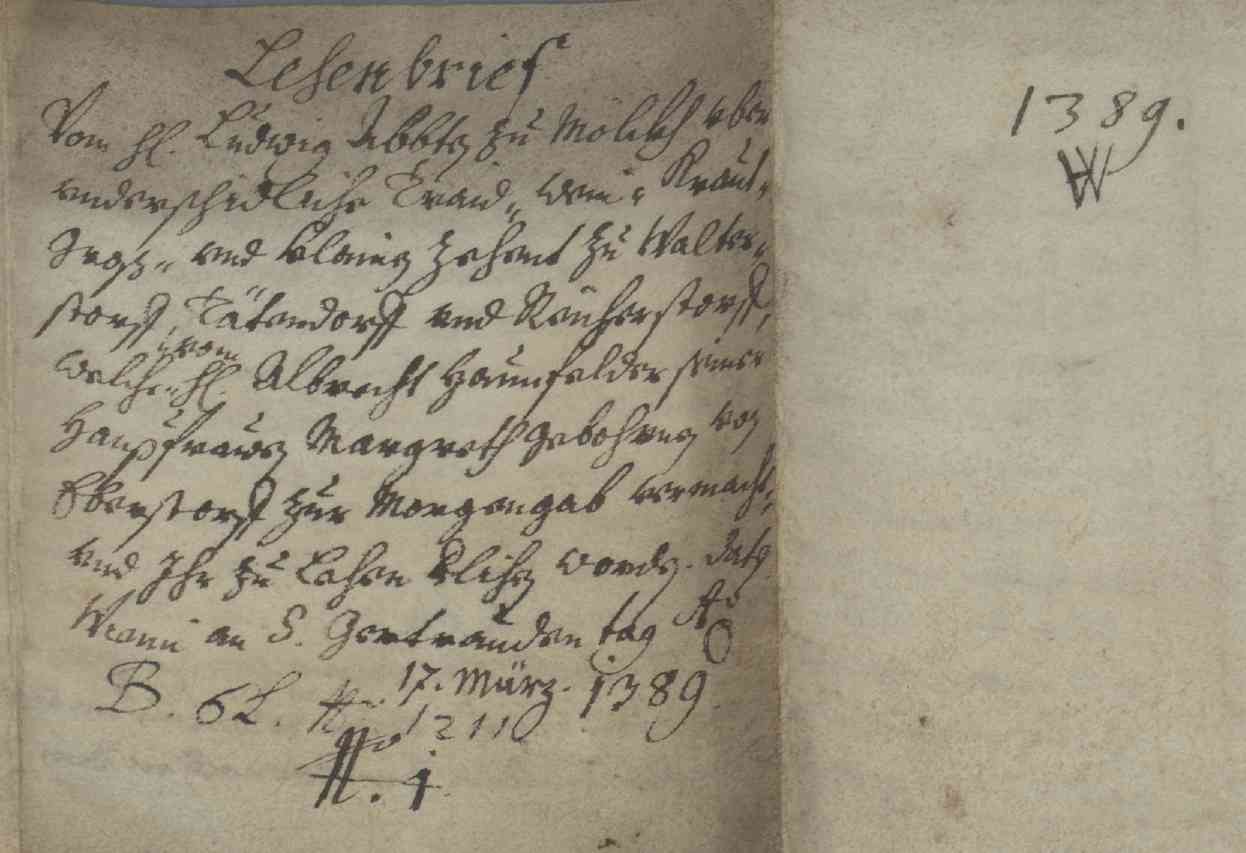 Lehenbrief
Vom hl. Ludwig Abbtẽ zu Mölckh vber
vnderschidliche Traid„ Wein„ Kraut„
vnd klainẽ Zehent zu Walter„
storff, Tätendorff vnd Reicherstorff,
welche vom hl. Albrecht Haunfelder seiner
Haußfrawẽ Margreth gebohrnẽ von
Eberstorff zur Morgengab vermacht,
vnd Ihr zu Lehen worden. datũ
Wenn an S. Gertrauden tag Ao
17. März. 1389.
B. 62.
1211
#. 1
1389.
W